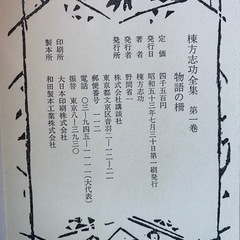 棟方志功全集 第一巻
物語の柵
定価 四千五百円
発行日 昭和五十三年七月三十日第一刷発行
著者 棟方志功
発行者 野間省一
発行所 株式会社講談社
東京都文京区音羽二―一二―二一
郵便番号一一二
電話〇三―九四五―一一一一(大代表)
振替 東京八―三九三〇
印刷所 大日本印刷株式会社
製本所 和田製本工業株式会社